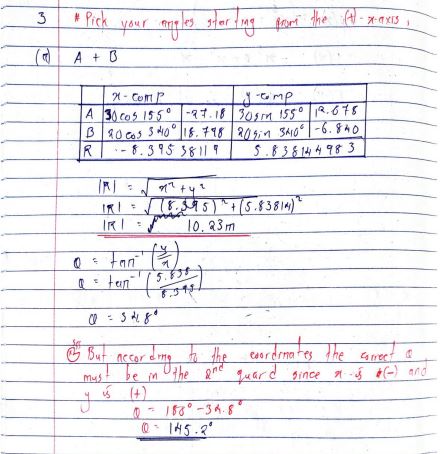 3 * Pick your angles starting from the (+)-x-axis,
(a) A + B
x-comp y-comp
A 30cos 155° -27.18 30sin 155° 12.678
B 20cos 340° 18.798 20sin 340° -6.840
R -8.395 38119 5.838144983
|R| = √x² + y²
|R| = √(8.395)² + (5.83814)²
|R| = 10.23m
θ = tan⁻¹ (y/x)
θ = tan⁻¹ (5.838/8.395)
θ = 34.8°
But according to the coordinates the correct θ
must be in the 2nd quard since x is (-) and
y is (+)
θ = 180° - 34.8°
θ = 145.2°